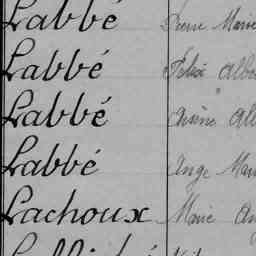 Labbé Pierre Marie
Labbé Félix Albe
Labbé Arsène Alb
Labbé Ange Mar
Lachoux Marie An